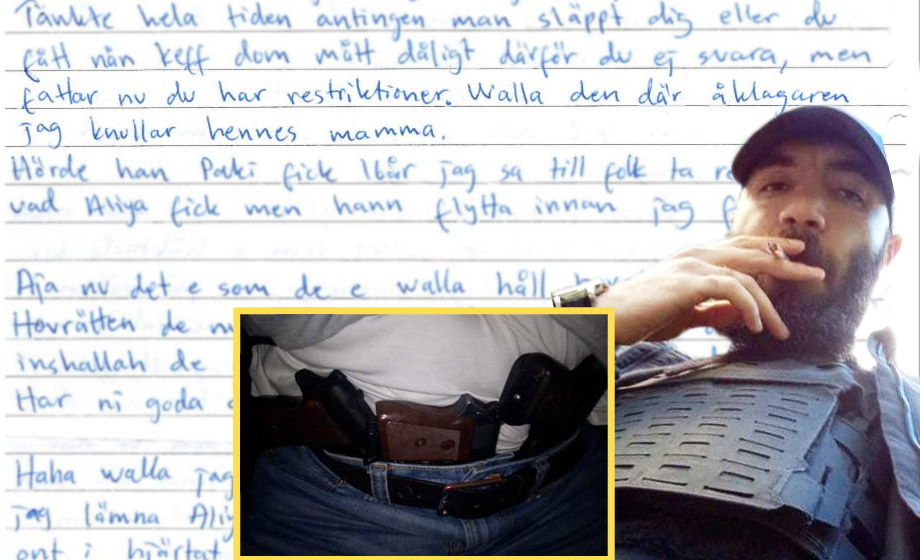 Tänkte hela tiden antingen man släppt dig eller du
fått nån keff dom mått dåligt därför du ej svara, men
fattar nu du har restriktioner. Walla den där åklagaren
jag knullar hennes mamma.
Hörde han Paki fick 16år jag sa till folk ta
vad Aliya fick men hann flytta innan jag
Aja nu det e som de e walla håll
Hovrätten de
inshallah de
Har ni goda
Haha walla jag
jag lämna
ont i hjärtat